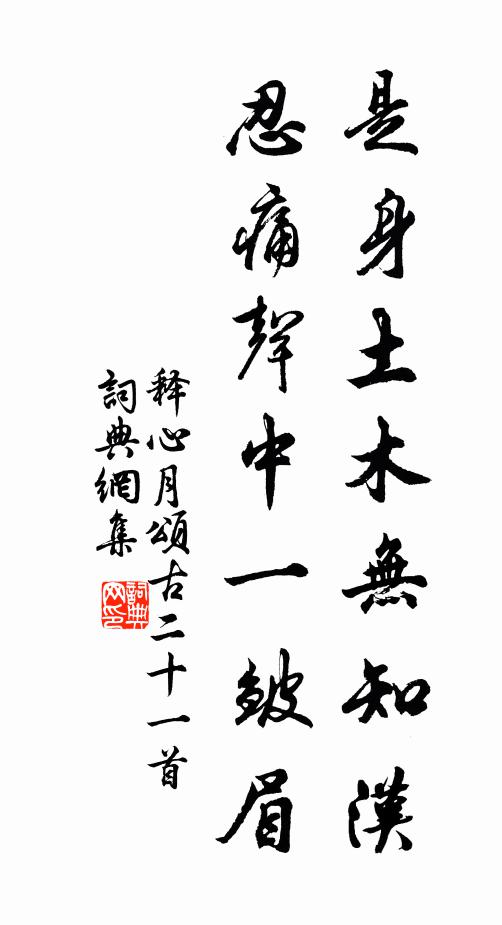 是身土木無知漢
忍痛聲中一皺眉
释心月頌古二十一首
詞典網集
詞典
网印